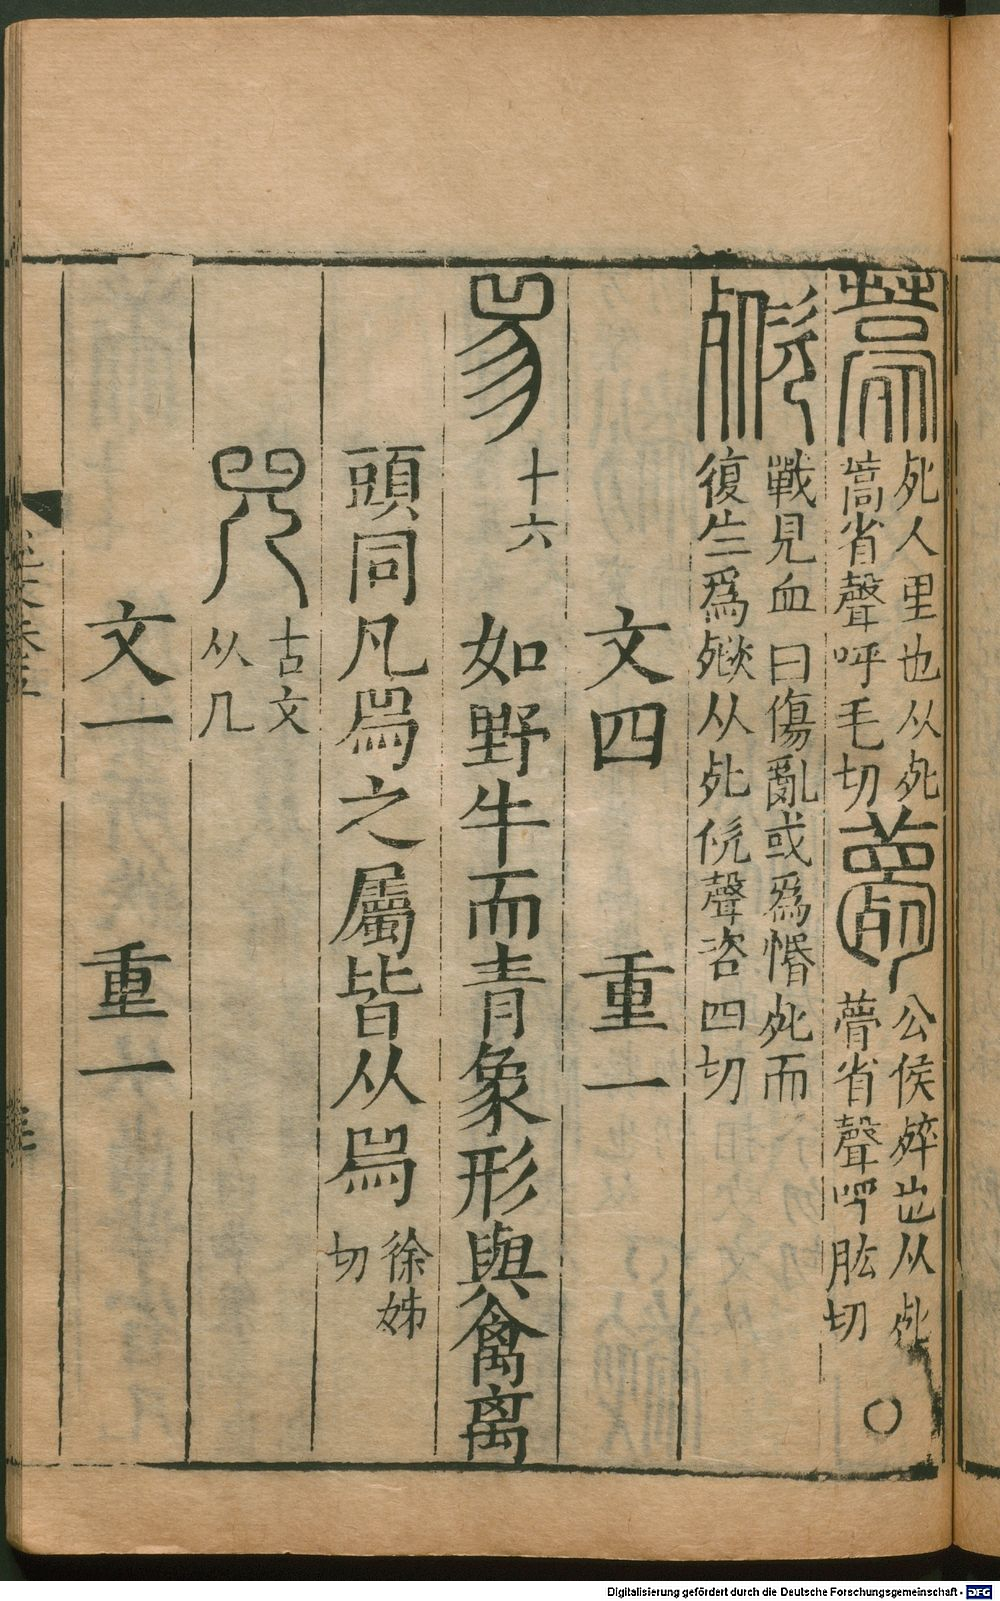 薧 死人里也从死
蒿省聲呼毛切
薨 公侯㱚也从死
瞢省聲呼肱切 〇
𣩠 戰見血曰傷亂或爲惛死而
復生爲𣩠从死㳄聲咨四切
文四 重一
𤉡 十六 如野牛而青象形與禽离
頭同凡𤉡之屬皆从𤉡 徐姊
切
兕 古文
从几
文一 重一
Digitalisierung gefördert durch die Deutsche Forschungsgemeinschaft - DFG